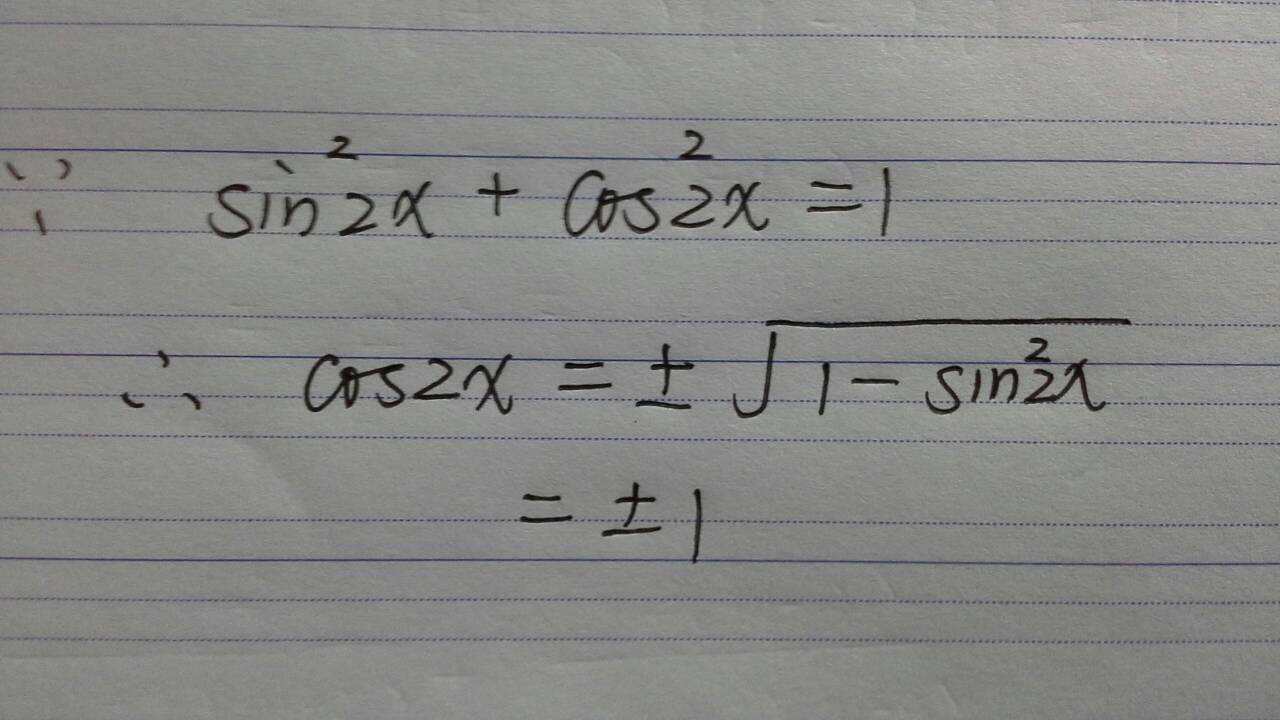 ∵ sin²2x + cos²2x = 1
∴ cos2x = ± √(1 - sin²2x)
= ± 1